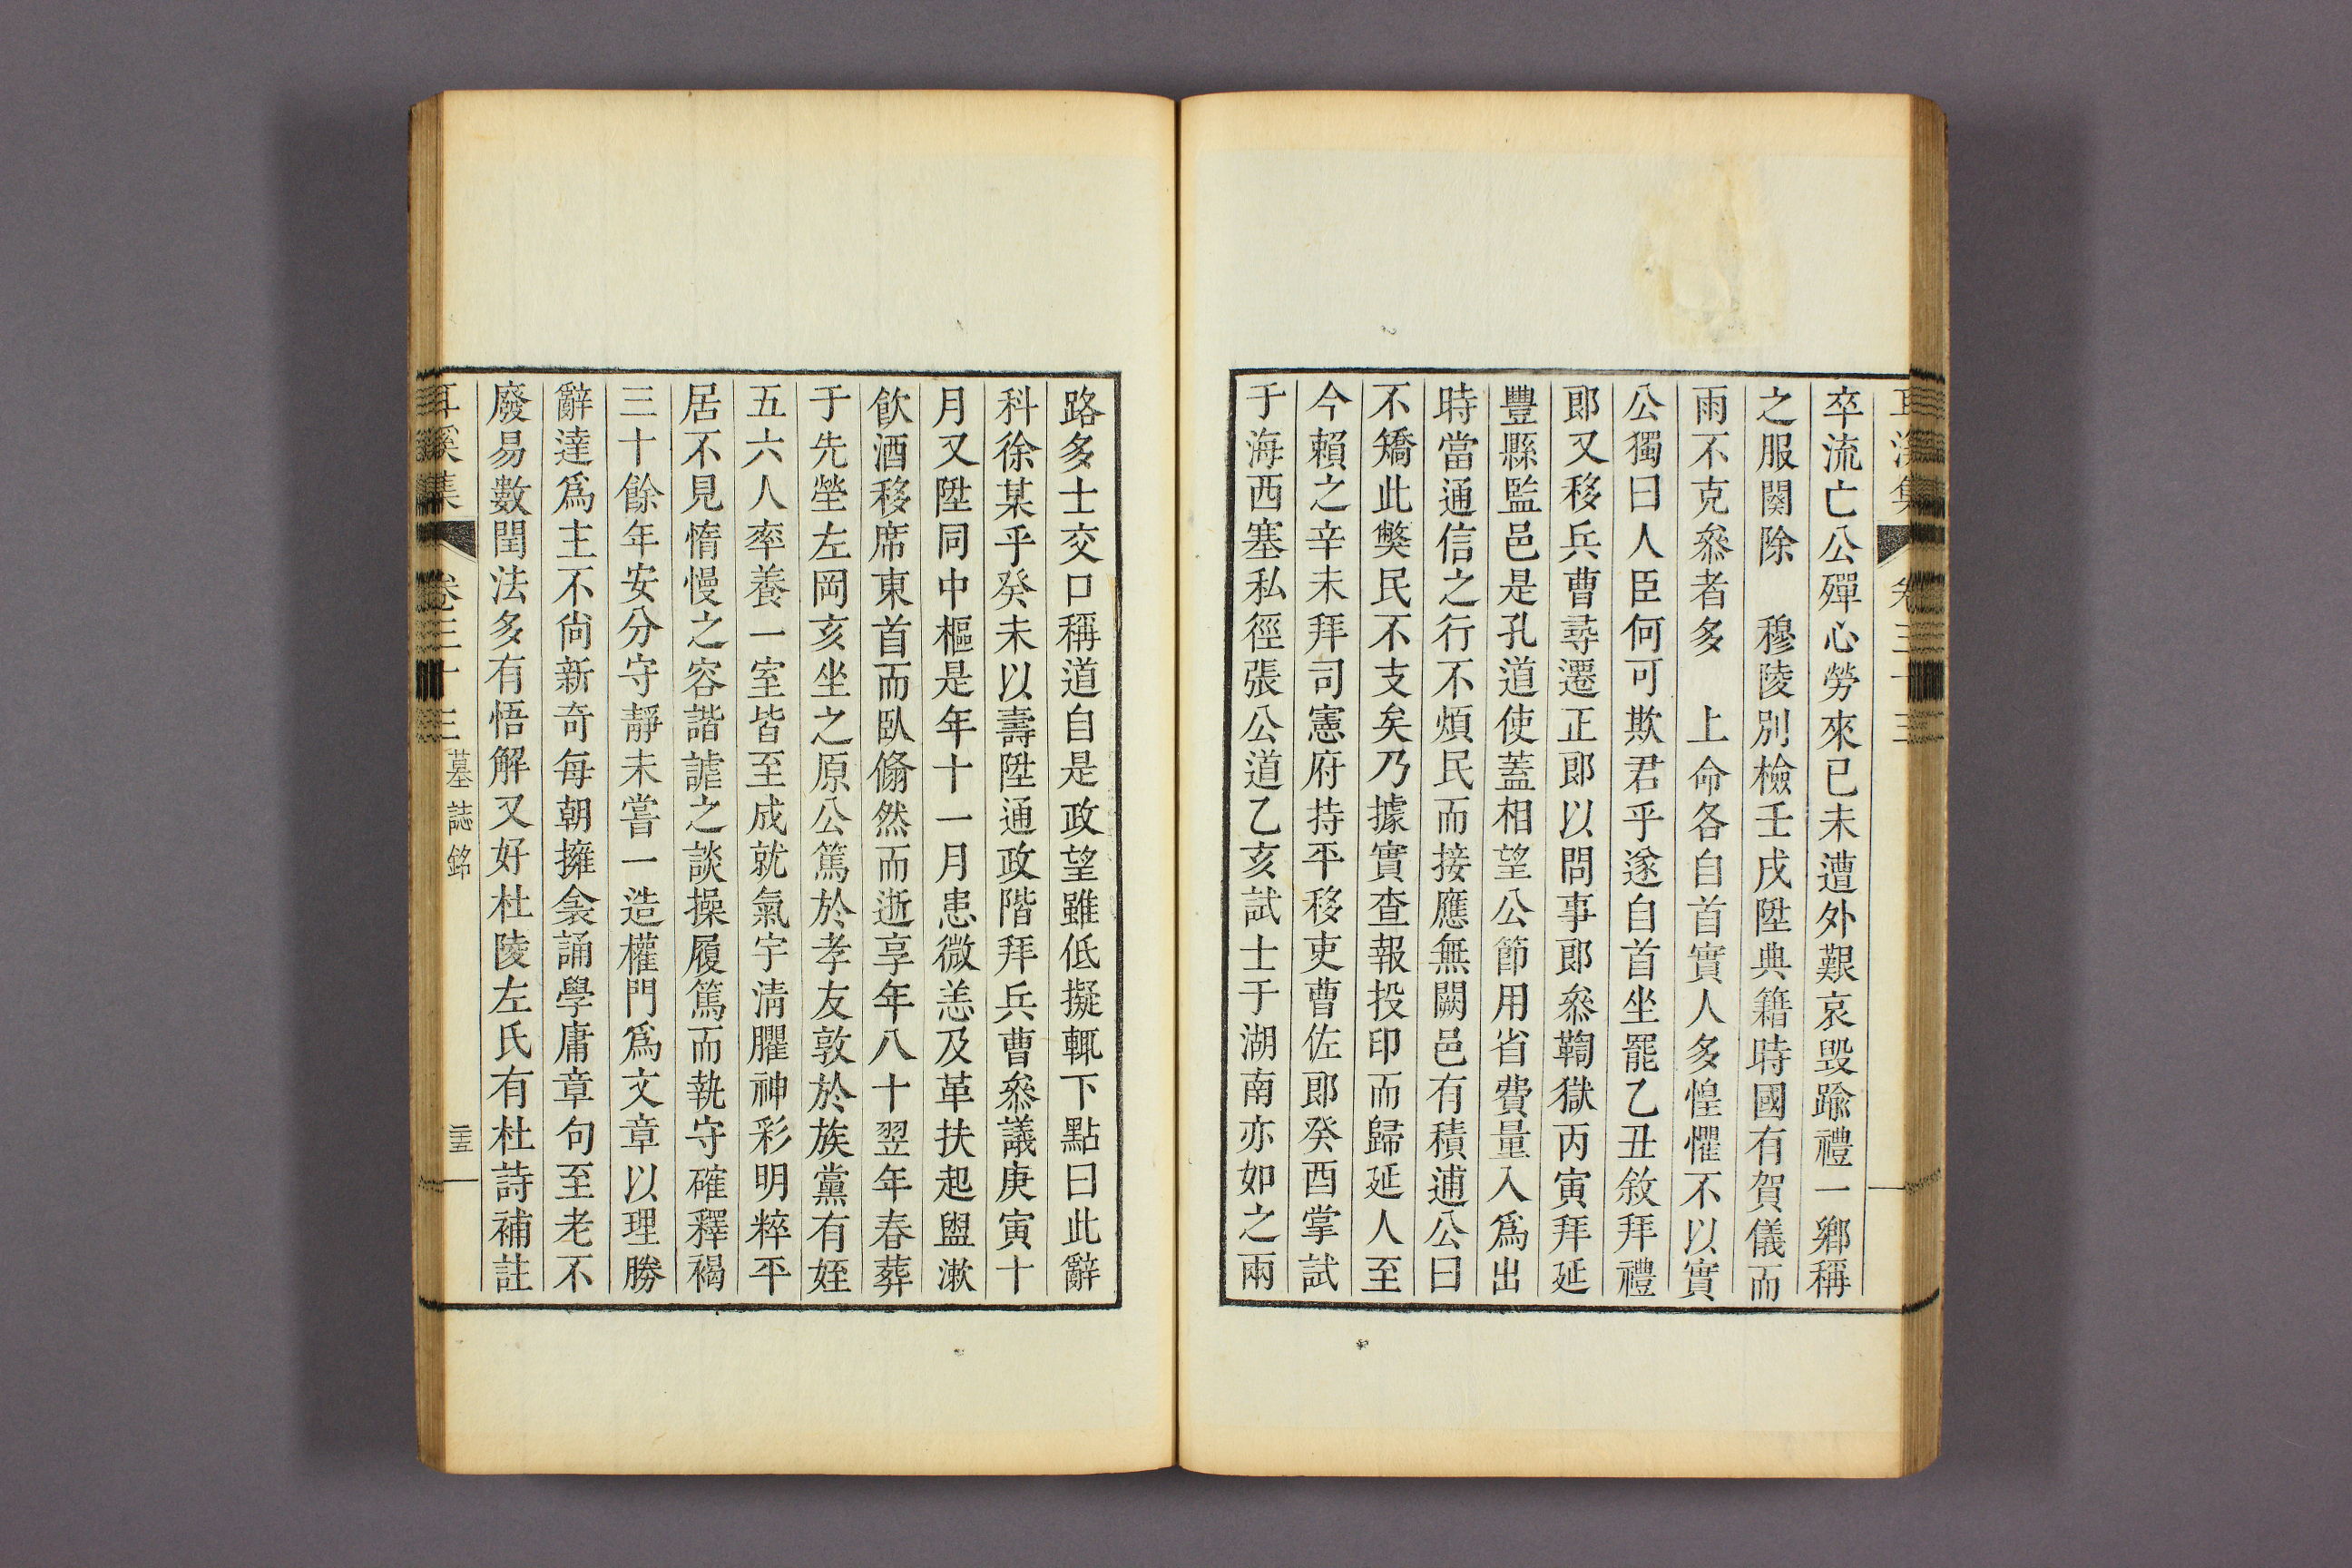 卒流亡公殫心勞來已未遭外艱哀毁踰禮一鄕稱
之服闋除 穆陵別檢壬戌陞典籍時國有賀儀而
雨不克叅者多 上命各自首實人多惶懼不以實
公獨曰人臣何可欺君乎遂自首坐罷乙丑敘拜禮
郞又移兵曹尋遷正郞以問事郞叅鞫獄丙寅拜延
豐縣監邑是孔道使蓋相望公節用省費量入爲出
時當通信之行不煩民而接應無闕邑有積逋公曰
不矯此獘民不支矣乃據實查報投印而歸延人至
今賴之辛未拜司憲府持平移吏曹佐郞癸酉掌試
于海西塞私徑張公道乙亥試士于湖南亦如之兩
路多士交口稱道自是政望雖低擬輒下點曰此辭
科徐某乎癸未以壽陞通政階拜兵曹叅議庚寅十
月又陞同中樞是年十一月患微恙及革扶起盥漱
飮酒移席東首而臥翛然而逝享年八十翌年春葬
于先塋左岡亥坐之原公篤於孝友敦於族黨有姪
五六人率養一室皆至成就氣宇淸臞神彩明粹平
居不見惰慢之容諧謔之談操履篤而執守確釋褐
三十餘年安分守靜未嘗一造權門爲文章以理勝
辭達爲主不尙新奇每朝擁衾誦學庸章句至老不
廢易數閏法多有悟解又好杜陵左氏有杜詩補註
耳溪集 卷三十三 墓誌銘